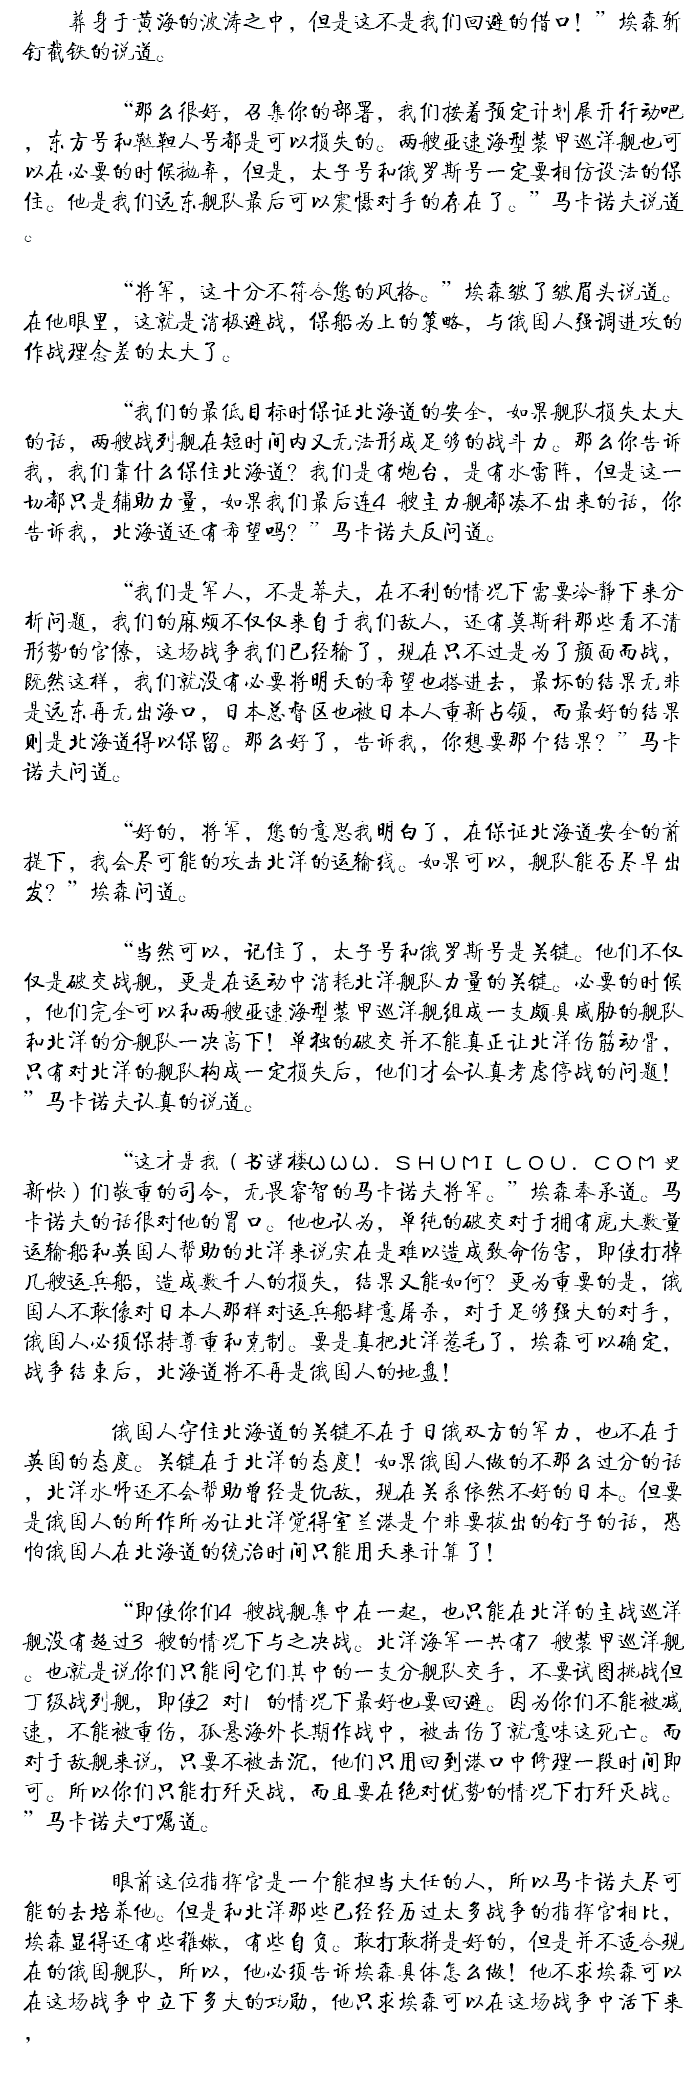 葬身于黄海的波涛之中，但是这不是我们回避的借口！”埃森斩
钉截铁的说道。
“那么很好，召集你的部署，我们按着预定计划展开行动吧
，东方号和鞑靼人号都是可以损失的。两艘亚速海型装甲巡洋舰也可
以在必要的时候抛弃，但是，太子号和俄罗斯号一定要相仿设法的保
住。他是我们远东舰队最后可以震慑对手的存在了。”马卡诺夫说道
。
“将军，这十分不符合您的风格。”埃森皱了皱眉头说道。
在他眼里，这就是消极避战，保船为上的策略，与俄国人强调进攻的
作战理念差的太大了。
“我们的最低目标时保证北海道的安全，如果舰队损失太大
的话，两艘战列舰在短时间内又无法形成足够的战斗力。那么你告诉
我，我们靠什么保住北海道？我们是有炮台，是有水雷阵，但是这一
切都只是辅助力量，如果我们最后连4 艘主力舰都凑不出来的话，你
告诉我，北海道还有希望吗？”马卡诺夫反问道。
“我们是军人，不是莽夫，在不利的情况下需要冷静下来分
析问题，我们的麻烦不仅仅来自于我们敌人，还有莫斯科那些看不清
形势的官僚，这场战争我们已经输了，现在只不过是为了颜面而战，
既然这样，我们就没有必要将明天的希望也搭进去，最坏的结果无非
是远东再无出海口，日本总督区也被日本人重新占领，而最好的结果
则是北海道得以保留。那么好了，告诉我，你想要那个结果？”马卡
诺夫问道。
“好的，将军，您的意思我明白了，在保证北海道安全的前
提下，我会尽可能的攻击北洋的运输线。如果可以，舰队能否尽早出
发？”埃森问道。
“当然可以，记住了，太子号和俄罗斯号是关键。他们不仅
仅是破交战舰，更是在运动中消耗北洋舰队力量的关键。必要的时候
，他们完全可以和两艘亚速海型装甲巡洋舰组成一支颇具威胁的舰队
和北洋的分舰队一决高下！单独的破交并不能真正让北洋伤筋动骨，
只有对北洋的舰队构成一定损失后，他们才会认真考虑停战的问题！
”马卡诺夫认真的说道。
“这才是我（书迷楼ＷＷＷ．ＳＨＵＭＩＬＯＵ．ＣＯＭ更
新快）们敬重的司令，无畏睿智的马卡诺夫将军。”埃森奉承道。马
卡诺夫的话很对他的胃口。他也认为，单纯的破交对于拥有庞大数量
运输船和英国人帮助的北洋来说实在是难以造成致命伤害，即使打掉
几艘运兵船，造成数千人的损失，结果又能如何？更为重要的是，俄
国人不敢像对日本人那样对运兵船肆意屠杀，对于足够强大的对手，
俄国人必须保持尊重和克制。要是真把北洋惹毛了，埃森可以确定，
战争结束后，北海道将不再是俄国人的地盘！
俄国人守住北海道的关键不在于日俄双方的军力，也不在于
英国的态度。关键在于北洋的态度！如果俄国人做的不那么过分的话
，北洋水师还不会帮助曾经是仇敌，现在关系依然不好的日本。但要
是俄国人的所作所为让北洋觉得室兰港是个非要拔出的钉子的话，恐
怕俄国人在北海道的统治时间只能用天来计算了！
“即使你们4 艘战舰集中在一起，也只能在北洋的主战巡洋
舰没有超过3 艘的情况下与之决战。北洋海军一共有7 艘装甲巡洋舰
。也就是说你们只能同它们其中的一支分舰队交手，不要试图挑战但
丁级战列舰，即使2 对1 的情况下最好也要回避。因为你们不能被减
速，不能被重伤，孤悬海外长期作战中，被击伤了就意味这死亡。而
对于敌舰来说，只要不被击沉，他们只用回到港口中修理一段时间即
可。所以你们只能打歼灭战，而且要在绝对优势的情况下打歼灭战。
”马卡诺夫叮嘱道。
眼前这位指挥官是一个能担当大任的人，所以马卡诺夫尽可
能的去培养他。但是和北洋那些已经经历过太多战争的指挥官相比，
埃森显得还有些稚嫩，有些自负。敢打敢拼是好的，但是并不适合现
在的俄国舰队，所以，他必须告诉埃森具体怎么做！他不求埃森可以
在这场战争中立下多大的功勋，他只求埃森可以在这场战争中活下来
，